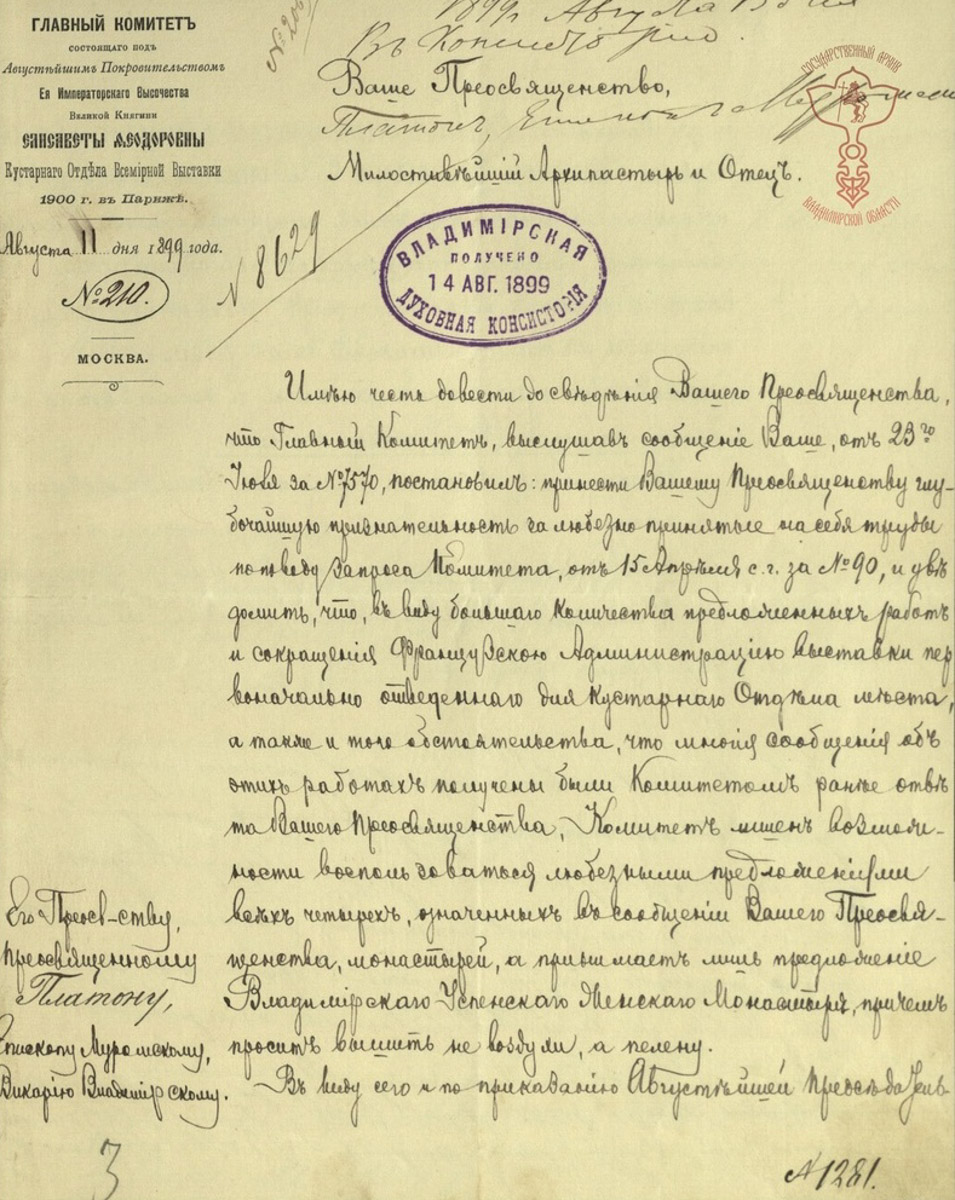 ГЛАВНЫЙ КОМИТЕТЪ
состоящаго подъ
Августѣйшимъ Покровительствомъ
Ея Императорскаго Высочества
Великой Княгини
ЕЛИСАВЕТЫ ѲЕОДОРОВНЫ
Кустарнаго Отдѣла Всемірной Выставки
1900 г. въ Парижѣ.
Августа 11 дня 1899 года.
№ 210.
МОСКВА.
1899 Августа
Въ Консисторію.
Ваше Преосвященство,
Платонъ, Епископъ Муромскій
Милостивѣйшій Архипастырь и Отецъ.
ГОСУДАРСТВЕННЫЙ АРХИВ
ВЛАДИМИРСКОЙ ОБЛАСТИ
N 8629
ВЛАДИМІРСКАЯ
ПОЛУЧЕНО
14 АВГ. 1899
ДУХОВНАЯ КОНСИСТОРІЯ
Имѣю честь довести до свѣдѣнія Вашего Преосвященства,
что Главный Комитетъ, выслушавъ сообщеніе Ваше, отъ 23го
Іюля за №7570, постановилъ: принести Вашему Преосвященству глу-
бочайшую признательность за любезно принятые на себя труды
по поводу запроса Комитета, отъ 15 Апрѣля с. г. за № 90, и увѣ
домить, что, въ виду большаго количества предложенныхъ работъ
и сокращенія Французскою Администраціею выставки пер
воначально отведеннаго для Кустарнаго Отдѣла мѣста,
а также и того обстоятельства, что многія сообщенія объ
этихъ работахъ получены были Комитетомъ ранѣе отвѣ
та Вашего Преосвященства, Комитетъ лишенъ возмож-
ности воспользоваться любезными предложеніями
всѣхъ четырехъ, означенныхъ въ сообщеніи Вашего Преосвя-
щенства, монастырей, а принимаетъ лишь предложеніе
Владимірскаго Успенскаго Женскаго Монастыря, причемъ
проситъ вышить не воздухи, а пелену.
Въ виду сего и по приказанію Августѣйшей Предсѣдатель-
Его Преосв-ству,
Преосвященному
Платону,
Епископу Муромскому,
Викарію Владимірскому.
3
N 1281.